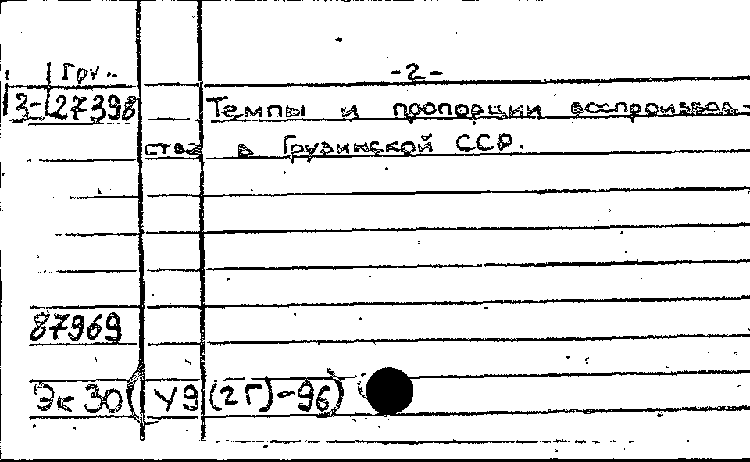 Гру.. -2-
З-27398 Темпы и пропорции воспроизвод-
ства в Грузинской ССР.
87969
Эк 30 (У9(2Г)-96)